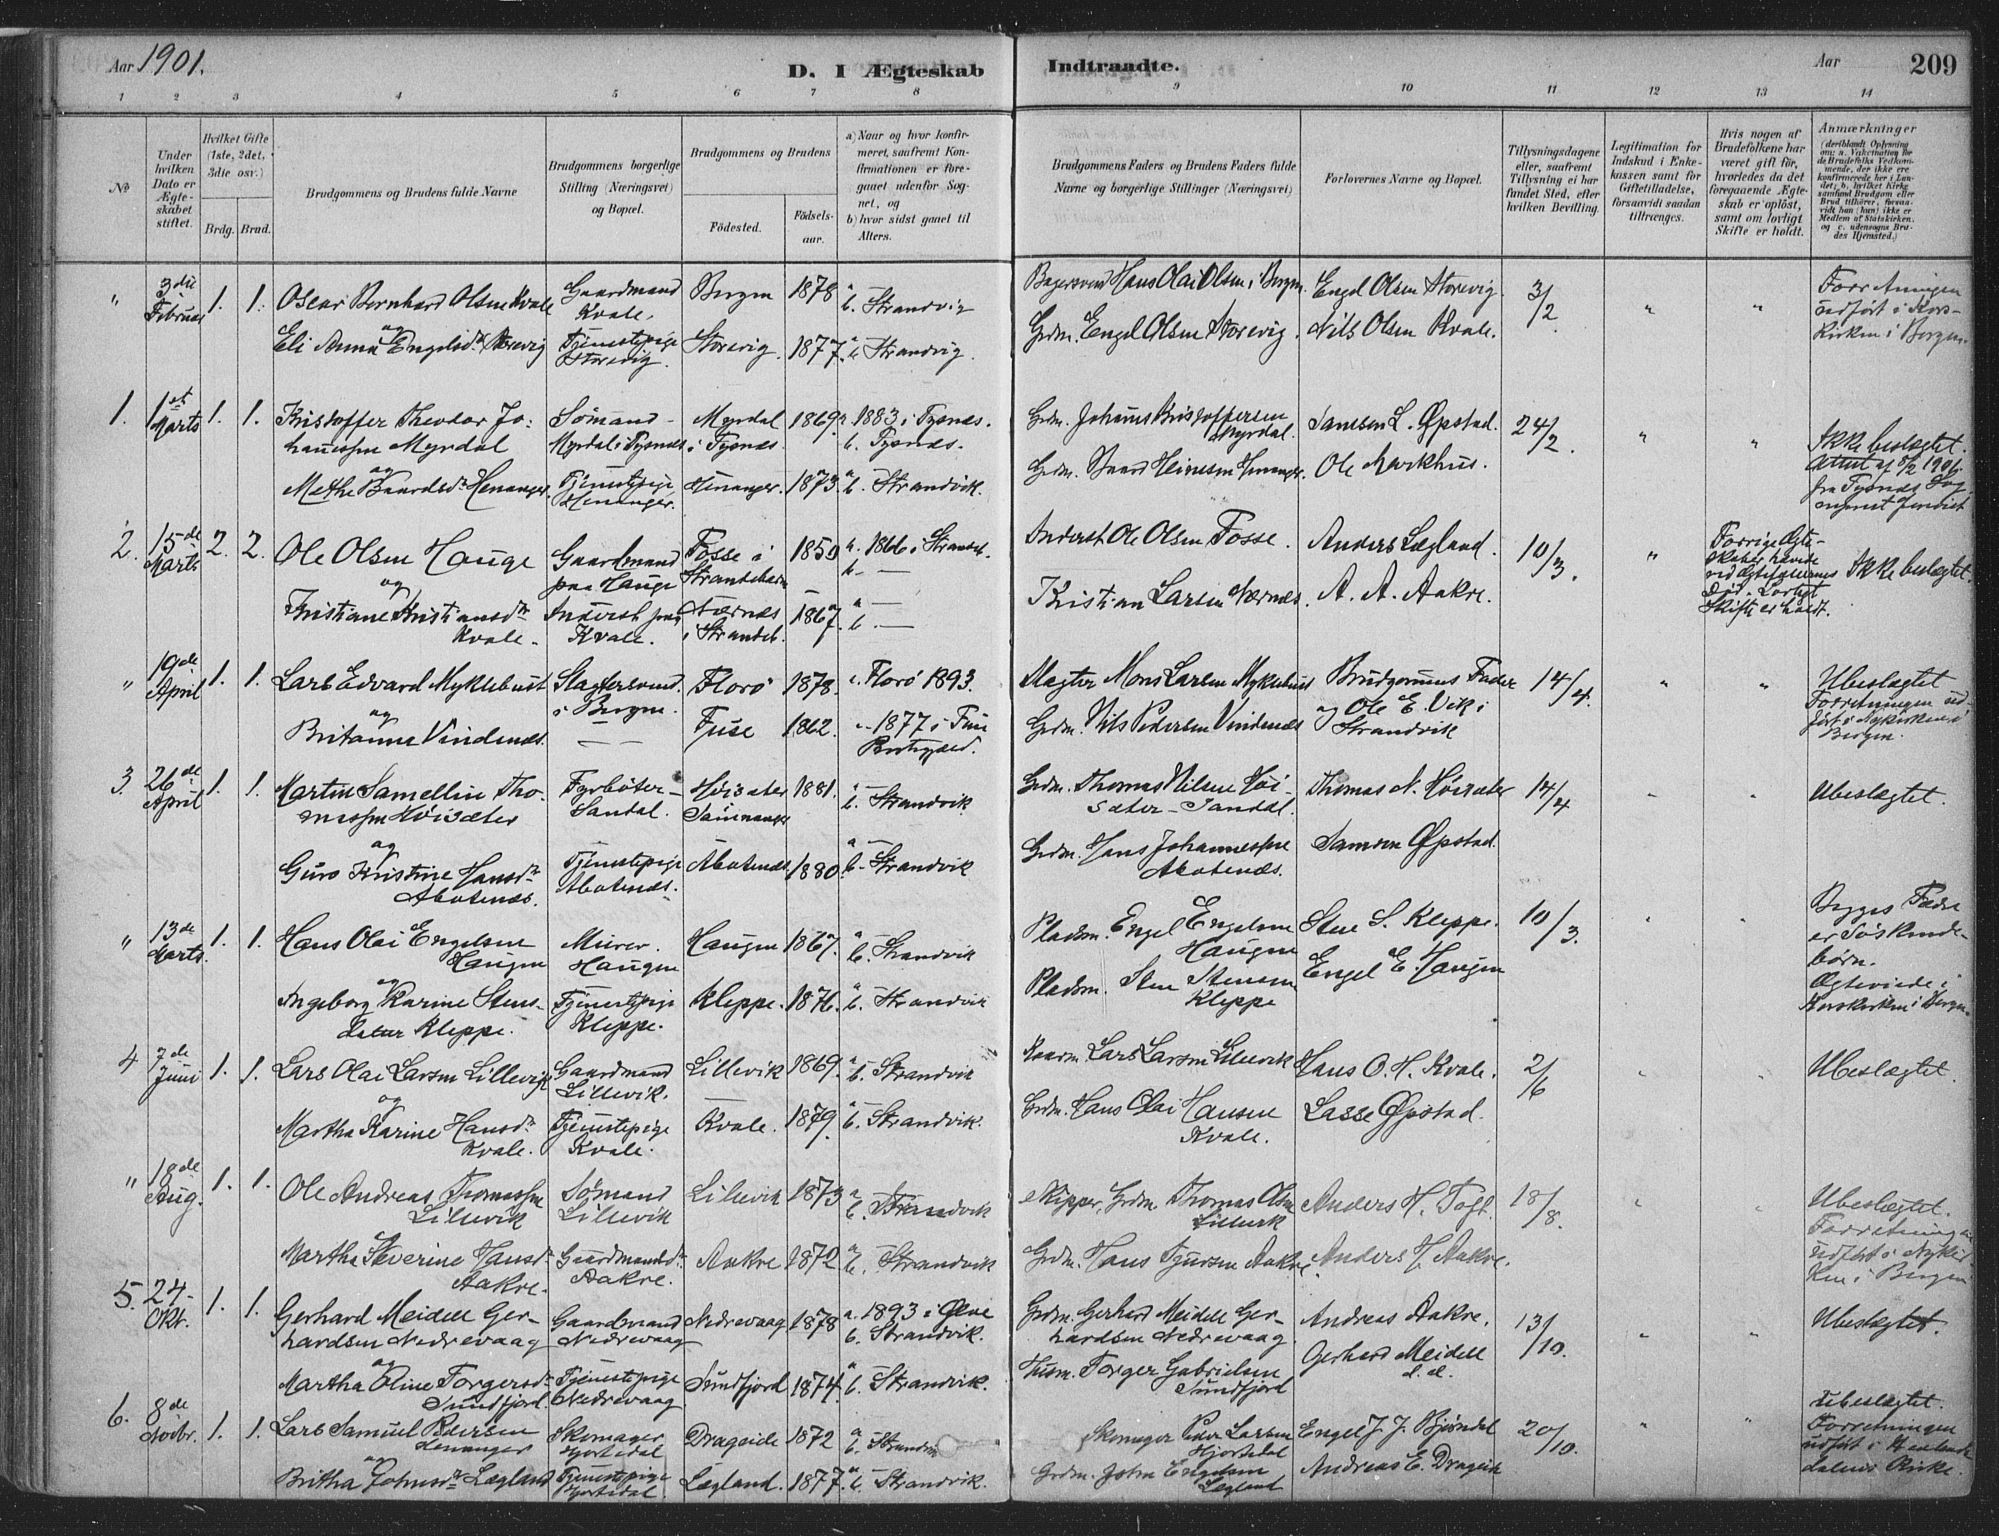 Aar 1901.
D. I Ægteskab
Indtraadte.
Aar
209
1 2 3 4 5 6 7 8 9 10 11 12 13 14
№
Under hvilken Dato er Ægteskabet stiftet.
Hvilket Gifte (1ste, 2det, 3die osv.)
Brdg. Brud.
Brudgommens og Brudens fulde Navne
Brudgommens borgerlige Stilling (Næringsvei) og Bopæl.
Brudgommens og Brudens
Födested.
Födsels-aar.
a) Naar og hvor konfirmeret, saafremt Konfirmationen er foregaaet udenfor Sognet, og
b) hvor sidst gaaet til Alters.
Brudgommens Faders og Brudens Faders fulde Navne og borgerlige Stillinger (Næringsvei)
Forlovernes Navne og Bopæl.
Tillysningsdagene eller, saafremt Tillysning ei har fundet Sted, efter hvilken Bevilling.
Legitimation for Indskud i Enkekassen samt for Giftetilladelse, forsaavidt saadan tiltrænges.
Hvis nogen af Brudefolkene har været gift för, hvorledes da det foregaaende Ægteskab er oplöst, samt om lovligt Skifte er holdt.
Anmærkninger
" 3die Februar 1. 1. Oscar Bernhard Olsen Kvale Gaardmand Kvale. Bergen 1878 a b. Strandvig Hans Olai Olsen i Bergen Engel Olsen Storevig. 3/2 " " Forretningen udført i Korskirken i Bergen.
og
Eli Anna Engelsdr Storevig Tjenestepige Storevig. Storevig. 1877. a b. Strandvig. Grdm. Engel Olsen Storevig. Nils Olsen Kvale.
1. 1st Marts 1. 1. Kristoffer Theodor Johannessen Myrdal Sømand Myrdal i Tysnæs Myrdal i Tysnæs 1869 a 1883 i Tysnæs. b. Tysnæs. Grdm. Johannes Kristoffersen Myrdal. Samson L. Øpstad. 24/2. " " Ikke beslægtet.
og
Baardsdr Henanger. Tjenestepige Henanger. Henanger. 1873. a b. Strandvik. Grdm. Baard Ole Markhus. fra Tysnæs
2. 15de Marts 2. 2. Ole Olsen Hauge Gaardmand paa Hauge Fosse i Strandebarm 1850 a. 1866 i Strandeb. b. — Inderst Ole Olsen Fosse. Anders Lægland. 10/3. " Forrige Ægteskaber hævde ved Ægtefællernes Død. Lovligt Skifte er holdt. Ikke beslægtet.
og
Kristiane Kristiansdr Kvale. Inderst paa Kvale. Nærnæs i Strandeb. 1867. a — b. — Kristian Larsen Nærnæs. A. A. Aakre.
" 19de April 1. 1. Lars Edvard Myklebust Slagtersvend i Bergen. Florø 1878. a. Florø 1893. Slagter Mons Larsen Myklebust Brudgommens Fader og Ole E. Vik i Strandvik 14/4. " " Ubeslægtet Forretningen udført i Nykirken i Bergen.
og
Britanna Vindenæs. — — Fuse 1862. 1877 i Fuse Grdm. Nils Pedersen Vindenæs
3. 26de April 1. 1. Martin Samellin Thomassen Høisæter Fyrbøter Sandal. Høisæter 1881. a b. Strandvik Grdm. Thomas Nilsen Høisæter Sandal. Thomas N. Høisæter 14/4 " " Ubeslægtet.
og
Guro Kristine Hansdr Abotenæs. Tjenestepige Abotenæs. Abotenæs 1880. a b. Strandvik Grdm. Hans Johannessen Abotenæs. Samson Øpstad.
" 13de Marts. 1. 1. Hans Olai Engelsen Haugen Murer. Haugen Haugen 1867. a b. Strandvik Pladsm. Engel Engelsen Haugen Sten S. Kleppe. 10/3. " " Begges Fædre er Søskendebørn. Ægteviede i Korskirken i Bergen.
og
Ingeborg Karine Stensdatter Kleppe. Tjenestepige Kleppe. Kleppe. 1876. a b. Strandvik Pladsm. Sten Stensen Kleppe Engel E. Haugen
4 7de Juni 1. 1. Lars Olai Larsen Lillevig Gaardmand Lillevik. Lillevik 1869. a b. Strandvik Lars Larsen Lillevik Hans O. H. Kvale. 2/6 " " Ubeslægtet.
og
Martha Karine Hansdr Kvale. Tjenestepige Kvale. Kvale. 1879. a b. Strandvik. Grdm. Hans Olai Hansen Kvale. Lasse Øpstad.
" 18de Aug. 1. 1. Ole Andreas Thomassen Lillevik Sømand Lillevik Lillevik 1873 a b. Strandvik Skipper, Grdm. Thomas Olsen Lillevik Anders H. Toft. 18/8. " " Ubeslægtet. Forretningen udført i Nykirken i Bergen
Martha Severine Hansdr Aakre. Gaardmandsdr Aakre. Aakre 1872 a b. Strandvik Grdm. Hans Sjursen Aakre. Anders H. Aakre.
5. 24. Okt. 1. 1. Gerhard Meidell Gerhardsen Nedrevaag Gaardmand Nedrevaag Nedrevaag 1878 a. 1893 i Ølve b. Strandvik. Grdm. Gerhard Meidell Gerhardsen Nedrevaag Andreas Aakre. 13/10. " " Ubeslægtet.
og
Martha Oline Torgersdr Sundfjord. Tjenestepige Nedrevaag Sundfjord 1874. a b. Strandvik. Husm. Torger Gabrielsen Sundfjord Gerhard Meidell d. æ.
6. 8de Novbr. 1. 1. Lars Samuel Pedersen Henanger Skomager Hjortedal Drageide 1872 a b. Strandvik Skomager Peder Larsen Hjortedal Engel J. J. Bjørndal 20/10. " " Ubeslægtet. Forretningen udført i Kirke.
og
Britha Johnsdr Lægland Tjenestepige Hjortedal. Lægland. 1877. a b. Strandvik. Grdm. John Engelsen Lægland Andreas E. Drageide